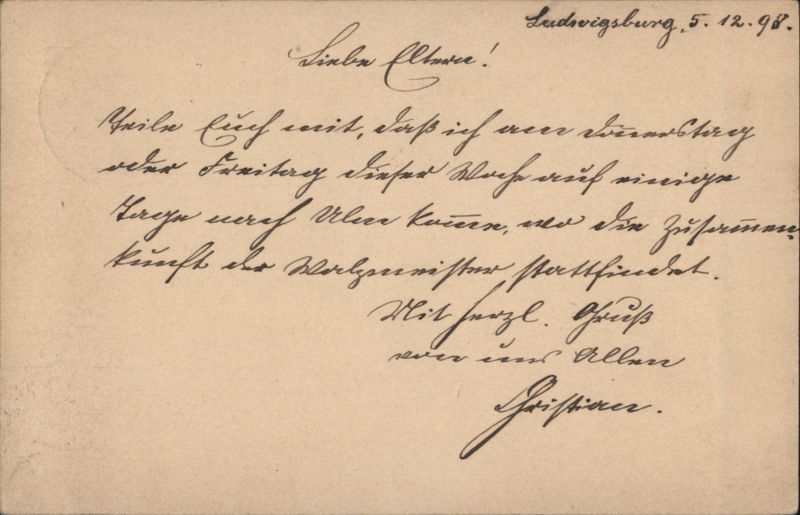 Ludwigsburg, 5. 12. 98.
Liebe Eltern!
Teile Euch mit, daß ich am Donnerstag
oder Freitag dieser Woche auf einige
Tage nach Ulm kom̄e, wo die Zusam̄en-
kunft der Walzmeister stattfindet.
Mit herzl. Gruß
von uns Allen
Christian.